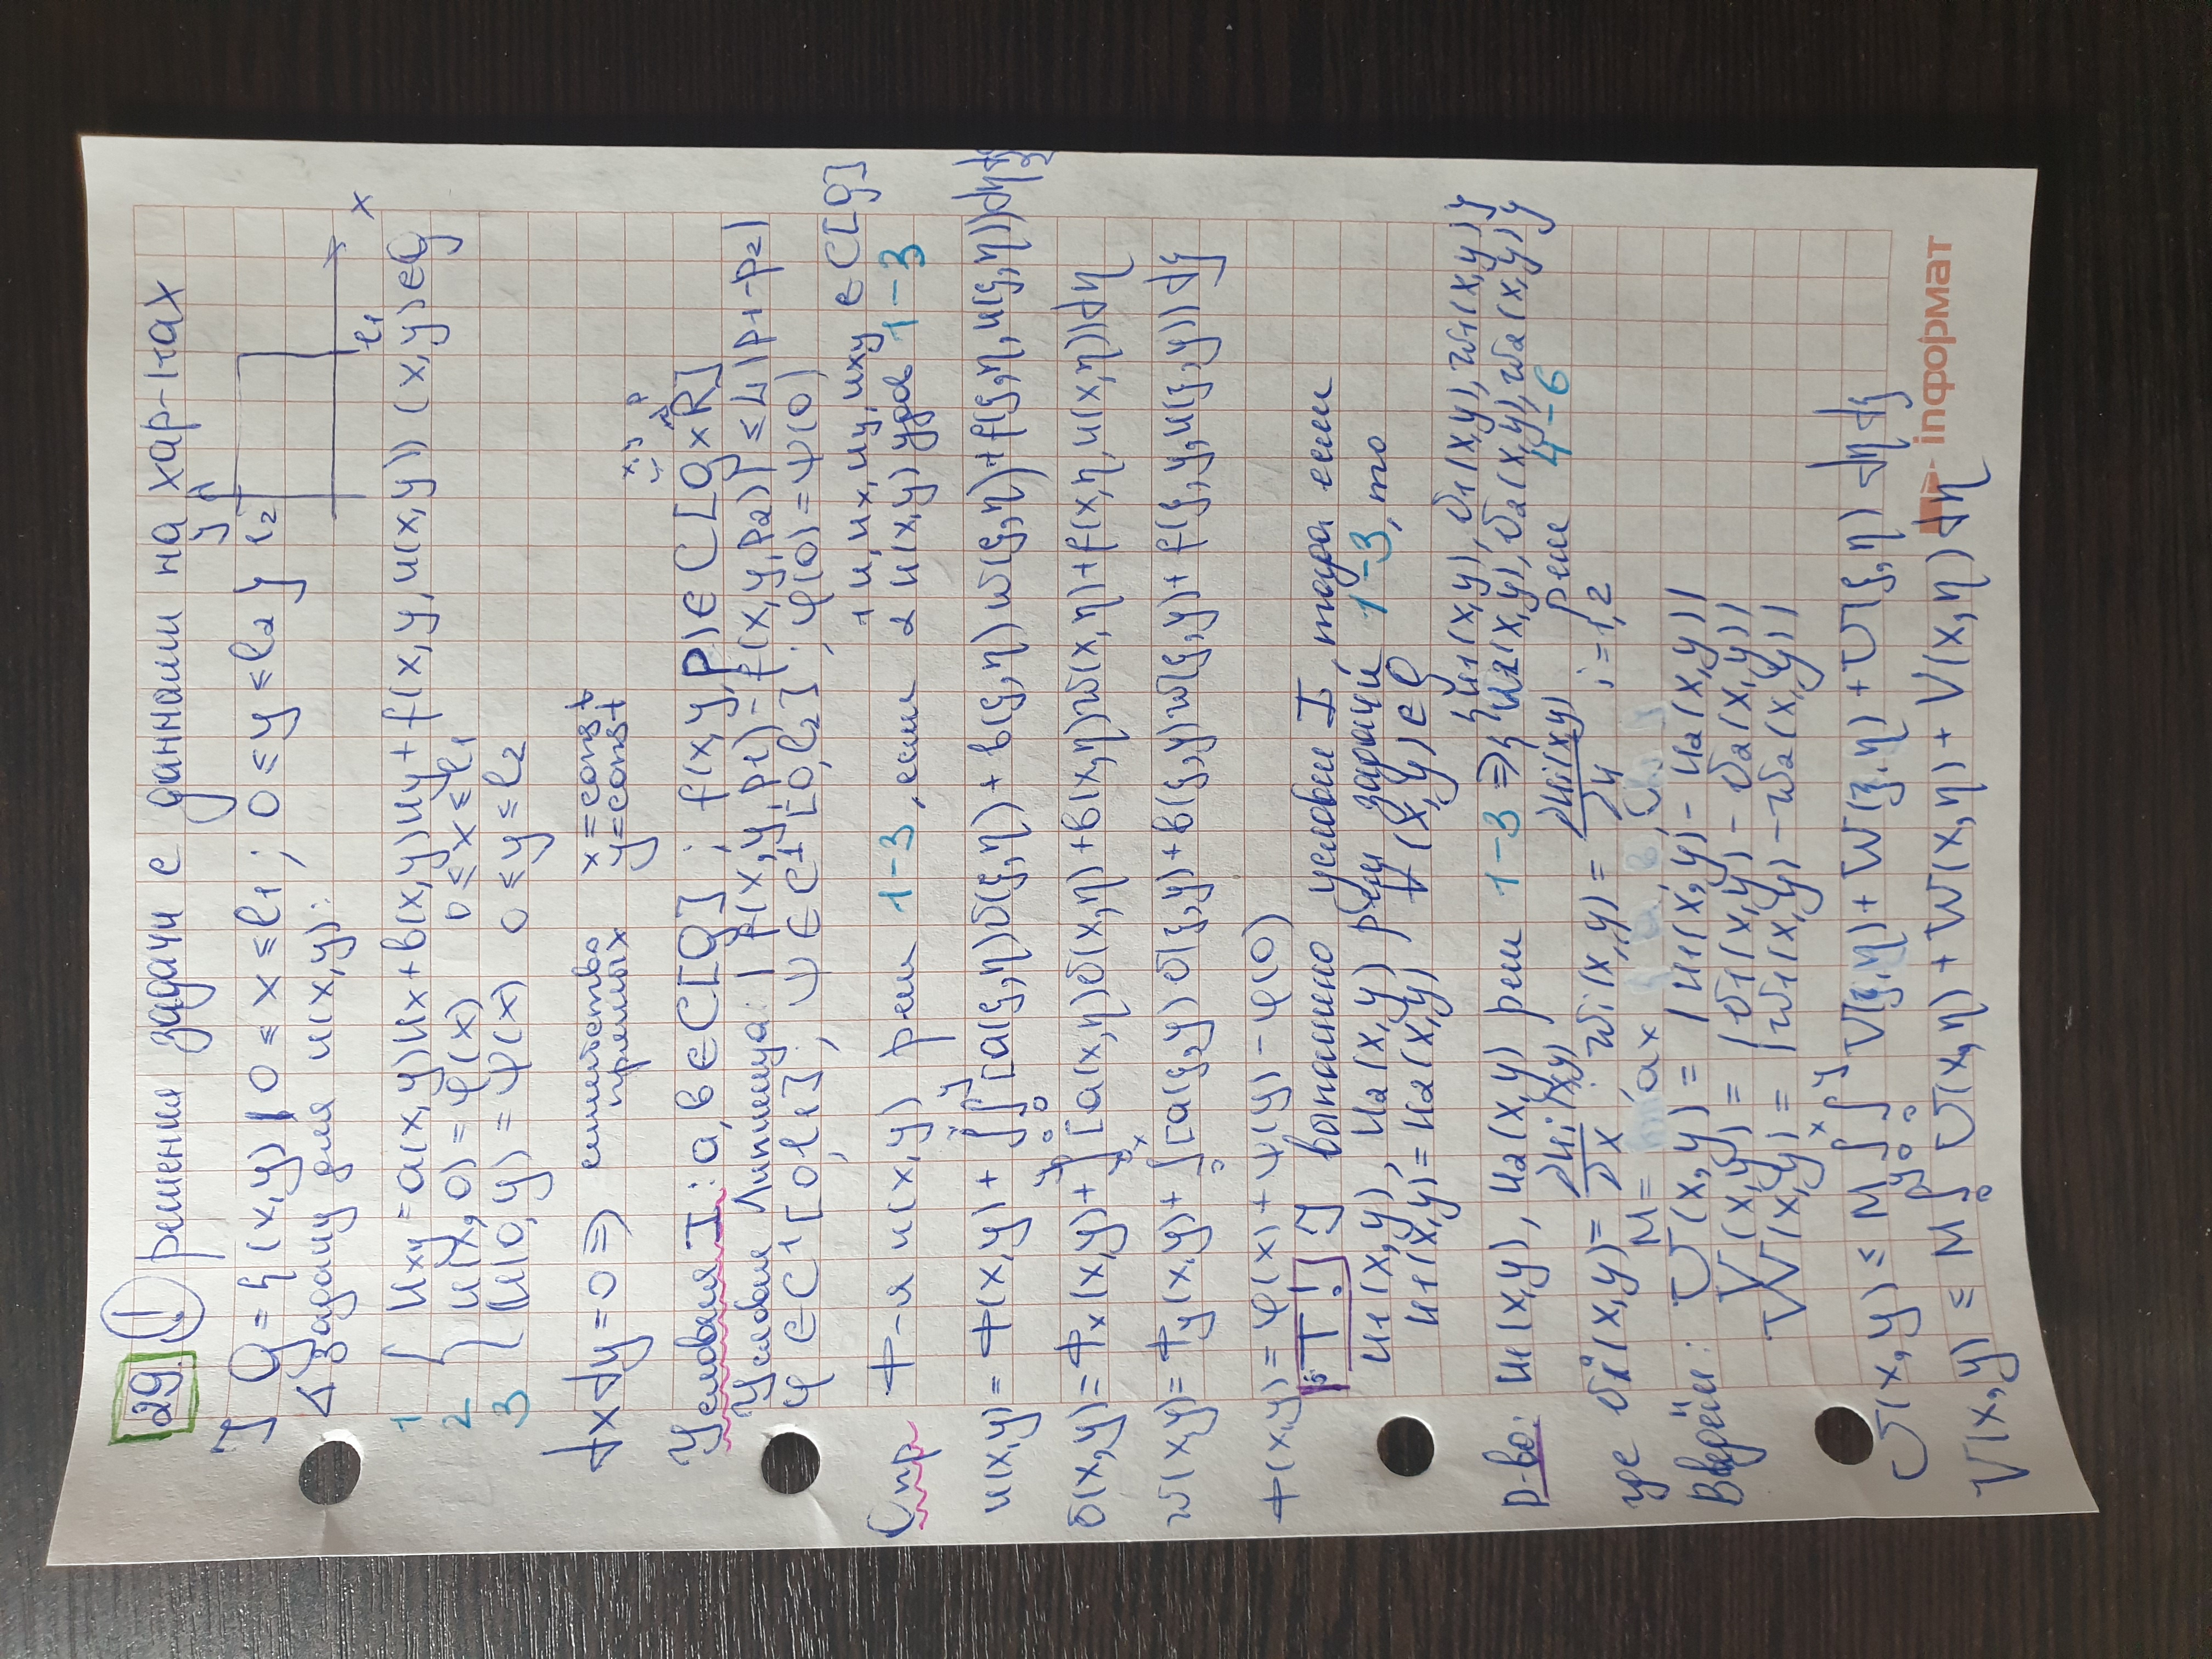 29. ! решения задачи с данными на хар-тах
] Q = { (x,y) | 0 ≤ x ≤ l1 ; 0 ≤ y ≤ l2 }
y
l2
l1
x
задачу для u(x,y):
1 { uxy = a(x,y)ux + b(x,y)uy + f(x,y,u(x,y)) (x,y)∈Q
2 u(x,0) = φ(x) 0 ≤ x ≤ l1
3 u(0,y) = ψ(x) 0 ≤ y ≤ l2
dxdy = 0 ⇒ семейство прямых x=const y=const
Условия I: a, b ∈ C[Q] ; f(x,y,p) ∈ C[Q×R]
Условия Липшица: |f(x,y,p1) - f(x,y,p2)| ≤ L |p1-p2|
φ ∈ C1[0l1], ψ ∈ C1[0,l2]; φ(0) = ψ(0)
Опр Ф-я u(x,y) реш 1-3, если 1 u, ux, uy, uxy ∈ C[Q]
2 u(x,y) удов 1-3
u(x,y) = Ф(x,y) + ∫0x∫0y [a(ξ,η)v(ξ,η) + b(ξ,η)w(ξ,η) + f(ξ,η,u(ξ,η))]dηdξ
v(x,y) = Фx(x,y) + ∫0y [a(x,η)v(x,η) + b(x,η)w(x,η) + f(x,η,u(x,η))]dη
w(x,y) = Фy(x,y) + ∫0x [a(ξ,y)v(ξ,y) + b(ξ,y)w(ξ,y) + f(ξ,y,u(ξ,y))]dξ
Ф(x,y) = φ(x) + ψ(y) - φ(0)
T! ] выполнено условия I, тогда если
u1(x,y), u2(x,y) реш задачи 1-3, то
u1(x,y) = u2(x,y) ∀(x,y)∈Q
Д-во: u1(x,y), u2(x,y) реш 1-3 ⇒ {u1(x,y), v1(x,y), w1(x,y)}
{u2(x,y), v2(x,y), w2(x,y)}
где vi(x,y) = ∂ui(x,y)/∂x wi(x,y) = ∂ui(x,y)/∂y i=1,2 реш 4-6
M = max
Введём: U(x,y) = |u1(x,y) - u2(x,y)|
V(x,y) = |v1(x,y) - v2(x,y)|
W(x,y) = |w1(x,y) - w2(x,y)|
U(x,y) ≤ M ∫0x∫0y V(ξ,η) + W(ξ,η) + U(ξ,η) dηdξ
V(x,y) ≤ M ∫0y U(x,η) + W(x,η) + V(x,η) dη
информат